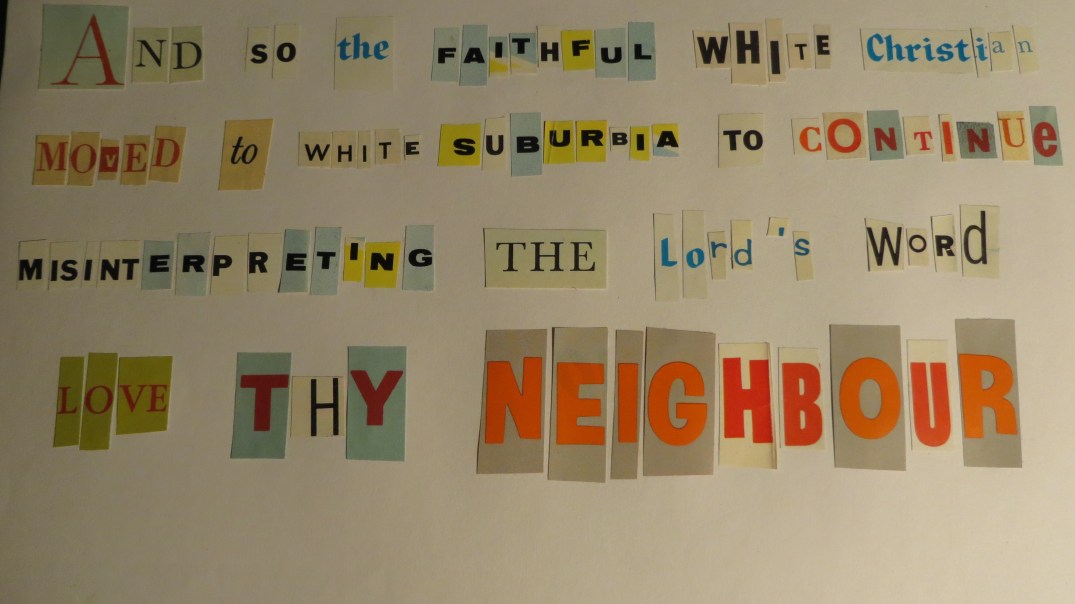 AND so the FAITHFUL WHITE Christian
MOVED to WHITE SUBURBIA TO CONTINUE
MISINTERPRETING THE Lord's WORD
LOVE THY NEIGHBOUR